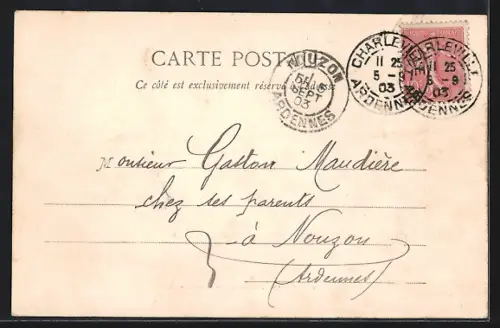 CARTE POSTALE
Ce côté est exclusivement réservé à l'adresse
NOUZON
SEPT
03
ARDENNES
CHARLEVILLE
11 25
5 - 9
03
ARDENNES
CHARLEVILLE
11 25
5 - 9
03
ARDENNES
Monsieur Gaston Maudière
chez ses parents
à Nouzon
(Ardennes)